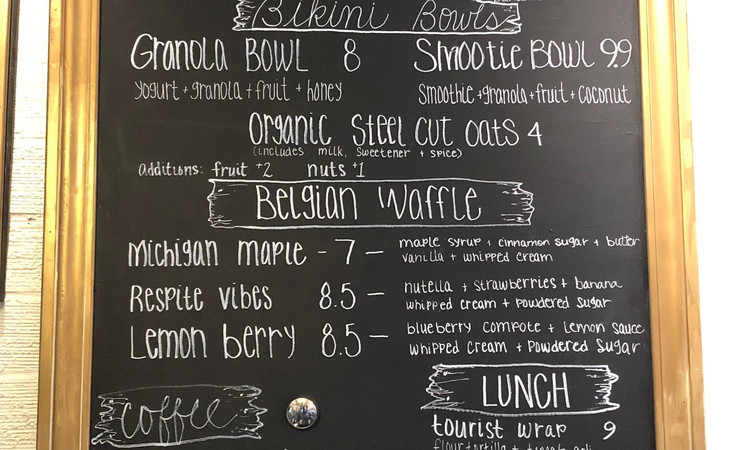 Bikini Bowls
Granola BOWL 8
yogurt + granola + fruit + honey
Smootie BOWL 9.9
Smoothie + granola + fruit + coconut
Organic Steel cut oats 4
(includes milk, sweetener + spice)
additions: fruit +2 nuts +1
Belgian Waffle
Michigan maple - 7 — maple syrup + cinnamon sugar + butter
vanilla + whipped cream
Respite vibes 8.5 — nutella + strawberries + banana
whipped cream + powdered sugar
Lemon berry 8.5 — blueberry compote + lemon sauce
whipped cream + powdered sugar
coffee
LUNCH
tourist wrap 9
flour tortilla +